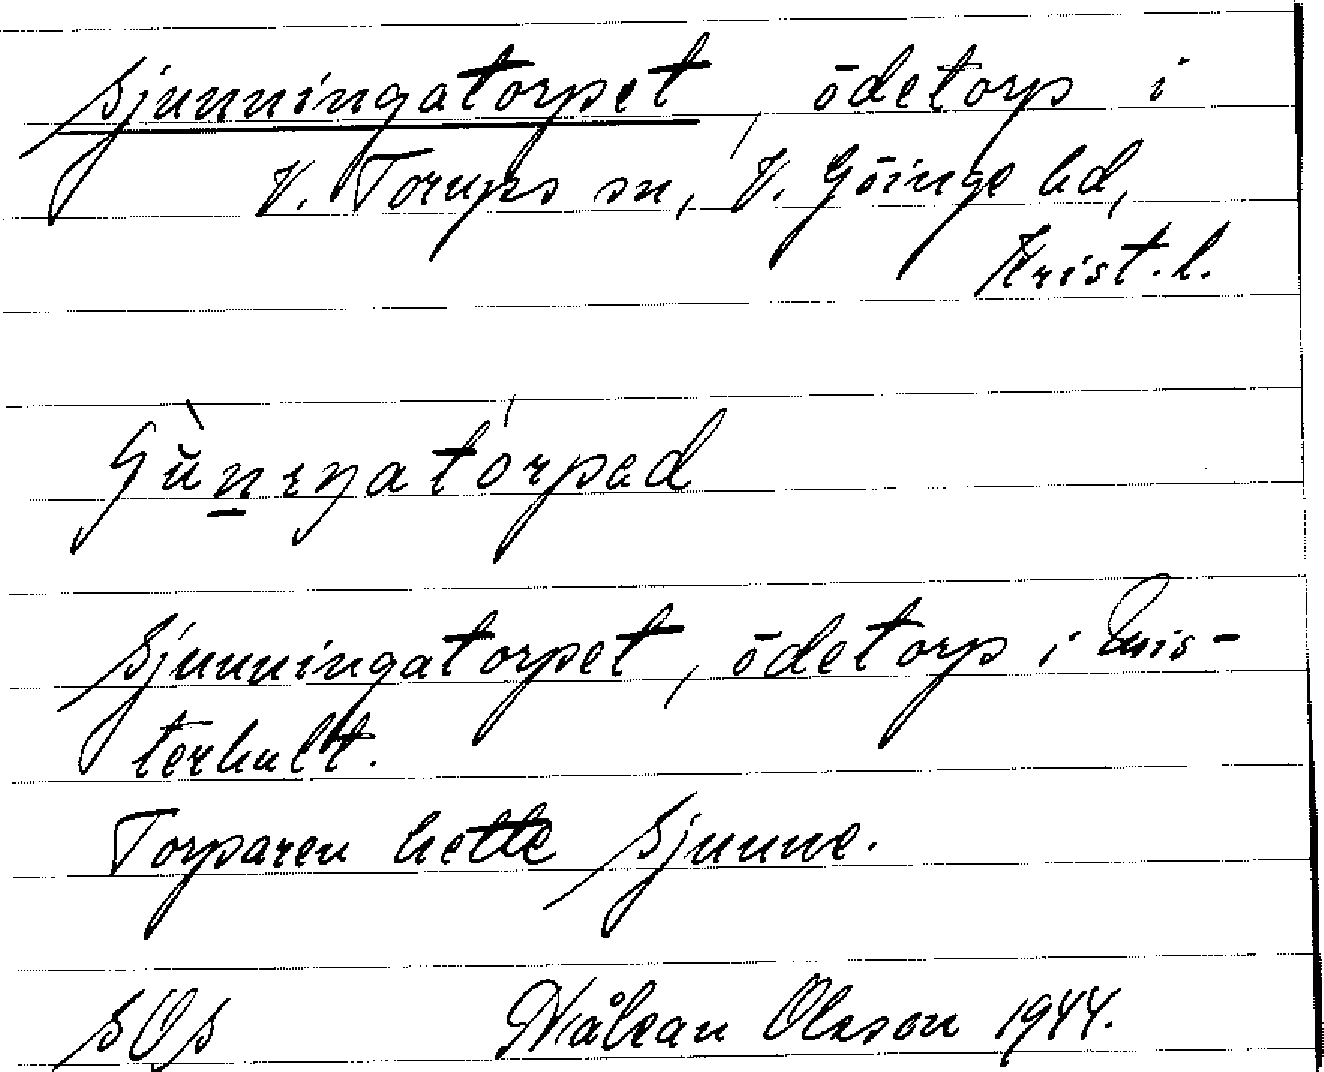 Sjunningatorpet, ödetorp i
V. Torups sn, V. Göinge hd,
Krist. l.
Sjunningatorpet, ödetorp i Emis-
terhult.
Torparen hette Sjunne.
SOS Håkan Olsson 1944.